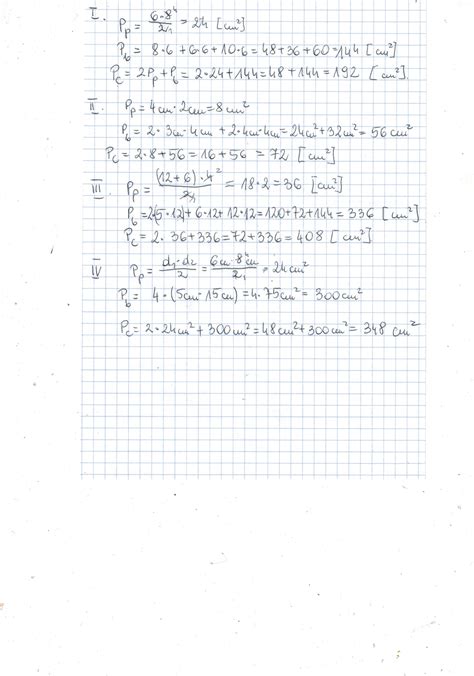 I. Pp = 6·8⁴/2₁ = 24 [cm²]
Pb = 8·6 + 6·6 + 10·6 = 48 + 36 + 60 = 144 [cm²]
Pc = 2Pp + Pb = 2·24 + 144 = 48 + 144 = 192 [cm²].
II. Pp = 4cm · 2cm = 8cm²
Pb = 2·3cm·4cm + 2·4cm·4cm = 24cm² + 32cm² = 56cm²
Pc = 2·8 + 56 = 16 + 56 = 72 [cm²]
III. Pp = (12+6)·4²/2₁ = 18·2 = 36 [cm²]
Pb = 2(5·12) + 6·12 + 12·12 = 120 + 72 + 144 = 336 [cm²]
Pc = 2·36 + 336 = 72 + 336 = 408 [cm²]
IV Pp = d₁·d₂/2 = 6cm·8⁴cm/2₁ = 24cm²
Pb = 4·(5cm·15cm) = 4·75cm² = 300cm²
Pc = 2·24cm² + 300cm² = 48cm² + 300cm² = 348 cm²